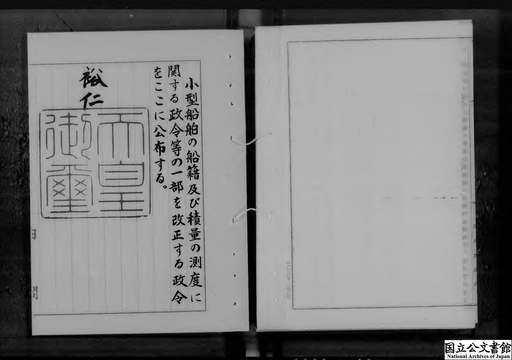 小型船舶の船籍及び積量の測度に
関する政令等の一部を改正する政令
をここに公布する。
裕仁
天皇
御璽
国立公文書館
National Archives of Japan